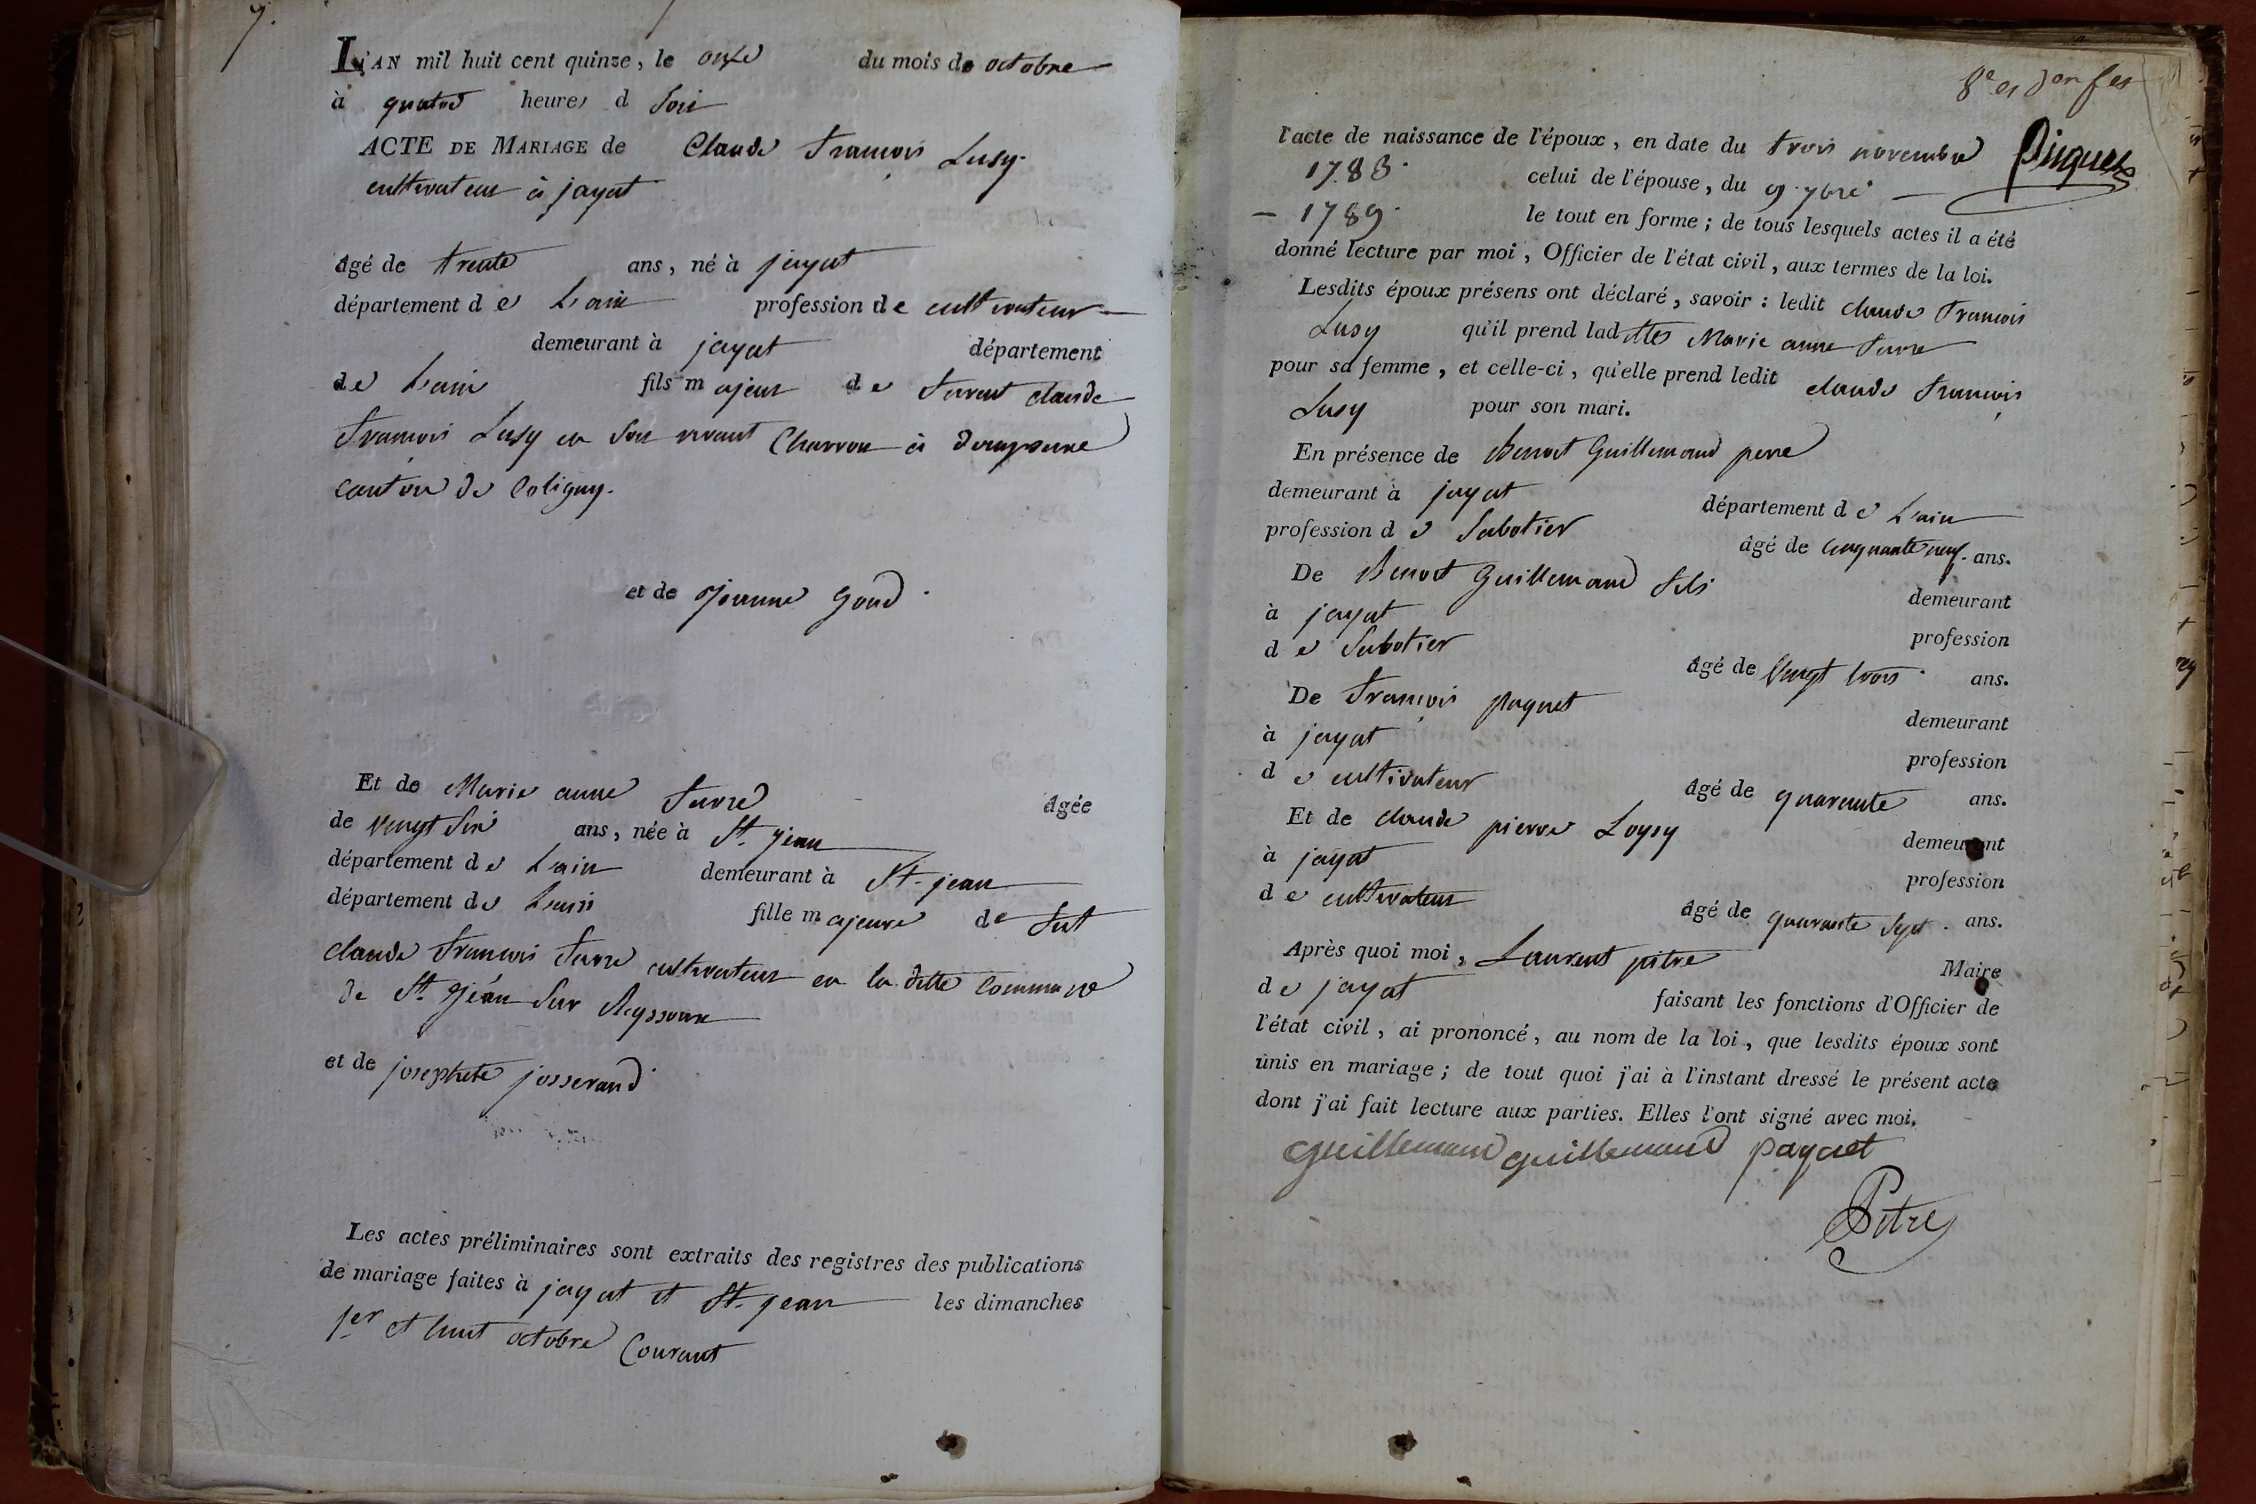 7.
L'AN mil huit cent quinze, le onze du mois de octobre
à quatre heures d Soir
ACTE DE MARIAGE de Claude francois Lusy.
cultivateur à jayat
âgé de trente ans, né à jayat
département de Lain profession de cultivateur
demeurant à jayat département
de Lain fils majeur de furent claude
francois Lusy en son vivant Charron à domprure
canton de Coligny.
et de Jeanne Goud.
Et de Marie anne favre âgée
de vingt six ans, née à St. Jean
département de Lain demeurant à St. jean
département de Lain fille majeure de fut
claude francois favre cultivateur en la ditte Commune
de St. Jean Sur Reyssouze
et de josephete josserand
Les actes préliminaires sont extraits des registres des publications
de mariage faites à jayat et St. jean les dimanches
1er et huit octobre Courant
8e et der fet
l'acte de naissance de l'époux, en date du trois novembre Piquet
1783. celui de l'épouse, du 9 7bre
1789. le tout en forme; de tous lesquels actes il a été
donné lecture par moi, Officier de l'état civil, aux termes de la loi.
Lesdits époux présens ont déclaré, savoir: ledit claude francois
Lusy qu'il prend ladittes Marie anne favre
pour sa femme, et celle-ci, qu'elle prend ledit claude francois
Lusy pour son mari.
En présence de Benoit Guillemaud pere
demeurant à jayat département de Lain
profession de Sabotier âgé de cinquante neuf. ans.
De Benoit Guillemaud fils demeurant
à jayat profession
de Sabotier âgé de vingt trois ans.
De francois paquet demeurant
à jayat profession
de cultivateur âgé de quarante ans.
Et de claude pierre Loysy demeurant
à jayat profession
de cultivateur âgé de quarante sept. ans.
Après quoi moi, Laurent pitre Maire
de jayat faisant les fonctions d'Officier de
l'état civil, ai prononcé, au nom de la loi, que lesdits époux sont
unis en mariage; de tout quoi j'ai à l'instant dressé le présent acte
dont j'ai fait lecture aux parties. Elles l'ont signé avec moi.
guillemaud guillemaud paquet
Pitre